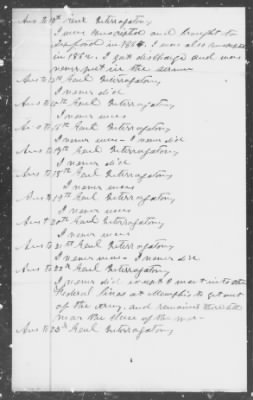 Ans to 12th Genl Interrogatory
I was conscripted and brought to
Oxford in 1862. I was also
in 1864. I got discharge and was
never put in the
Ans to 13th Genl Interrogatory
I never did
Ans to Genl Interrogatory
I never was
Ans to 16th Genl Interrogatory
I never was – I never did
Ans to 17th Genl Interrogatory
I never did
Ans to 18th Genl Interrogatory
I never was
Ans to 19th Genl Interrogatory
I never was
Ans to 20th Genl Interrogatory
I never was
Ans to 21st Genl Interrogatory
I never was – I never did
Ans to 22d Genl Interrogatory
I never did except I went into the
Federal lines at Memphis to get out
of the Army, and remained there till
near the close of the war
Ans to 23d Genl Interrogatory